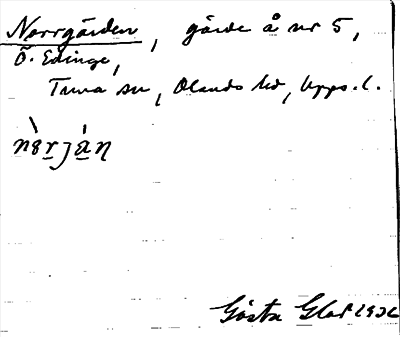 Norrgärden, gärde å nr 5,
Ö. Edinge,
Tuna sn, Olands hd, Upps. l.
Gösta Glas 1932